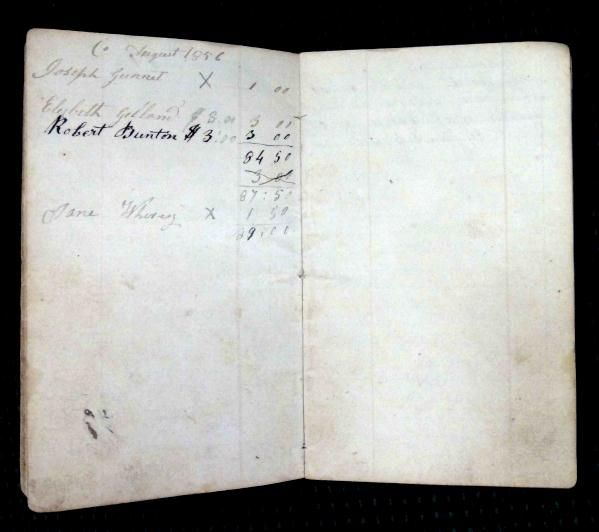 August 1856
Joseph Gunnet X 1 00
Elizbeth Golland $ 3.00 3 00
Robert Bunton $ 3.00 3 00
84 50
3 00
87:50
Jane X 1 50
89:00